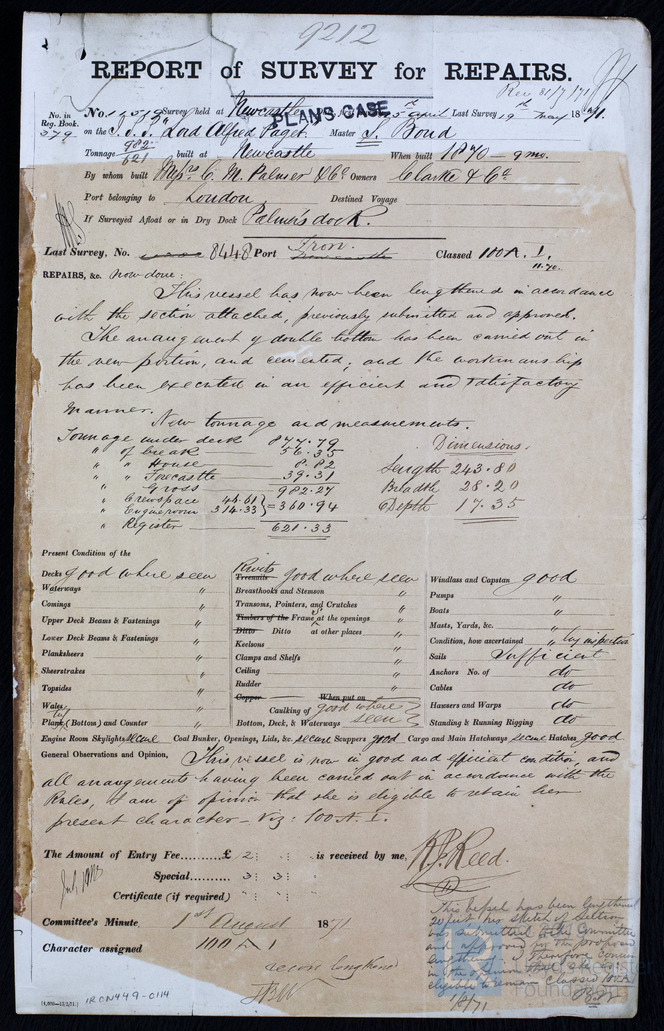 9212
REPORT of SURVEY for REPAIRS.
Rec 31/7/71
No. in Reg. Book. 279 No. Survey held at Newcastle April Last Survey 19th May 1871.
PLANS CASE
on the S.S. Lord Alfred Paget Master Bond
Tonnage 982/621 built at Newcastle When built 1870 - 9 mo.
By whom built Messrs C. M. Palmer & Co Owners Clarke & Co
Port belonging to London Destined Voyage
If Surveyed Afloat or in Dry Dock Palmer's dock.
Last Survey, No. 8448 Port Iron. Classed 100A.1. 11.70.
REPAIRS, &c. now done:
This vessel has now been lengthened in accordance
with the section attached, previously submitted and approved.
The arrangement of double bottom has been carried out in
the new portion, and cemented; and the workmanship
has been executed in an efficient and satisfactory
manner.
New tonnage and measurements.
Tonnage under deck 877.79
" of break 56.35
" " House 8.82
" " Forecastle 39.31
" Gross 982.27
" Crewspace 46.61
" Engineroom 314.33 } = 360.94
" Register 621.33
Dimensions.
Length 243.80
Breadth 28.20
Depth 17.35
Present Condition of the
Decks good where seen
Waterways "
Comings "
Upper Deck Beams & Fastenings "
Lower Deck Beams & Fastenings "
Planksheers "
Sheerstrakes "
Topsides "
Wales "
Plank (Bottoms) and Counter "
Rivets
Treenails good where seen
Breasthooks and Stemson "
Transoms, Pointers, and Crutches "
Timbers of the Frame at the openings "
Ditto Ditto at other places "
Keelsons "
Clamps and Shelfs "
Ceiling "
Rudder "
Copper When put on
Caulking of Bottom, Deck, & Waterways good where seen
Windlass and Capstan good
Pumps "
Boats "
Masts, Yards, &c. "
Condition, how ascertained " by inspection
Sails Sufficient
Anchors No. of do
Cables do
Hawsers and Warps do
Standing & Running Rigging do
Engine Room Skylights secure Coal Bunker, Openings, Lids, &c. secure Scuppers good Cargo and Main Hatchways secure Hatches good
General Observations and Opinion, This vessel is now in good and efficient condition, and
all arrangements having been carried out in accordance with the
Rules, I am of opinion that she is eligible to retain her
present character - Viz: 100A.1.
The Amount of Entry Fee.......... £ 2 : : is received by me,
Special.......... 3 : 3 :
Certificate (if required) : :
Reed.
Committee's Minute, 1st August 1871
Character assigned 100 A 1
This vessel has been lengthened
feet per sketch of section
was submitted to the Committee
and approved for the proposed
lengthening. I therefore concur
in the opinion that she is
eligible to remain classed 100A1
1/8/71
(4,000—13/2/71.)
IRON449-0114
Register
Foundation